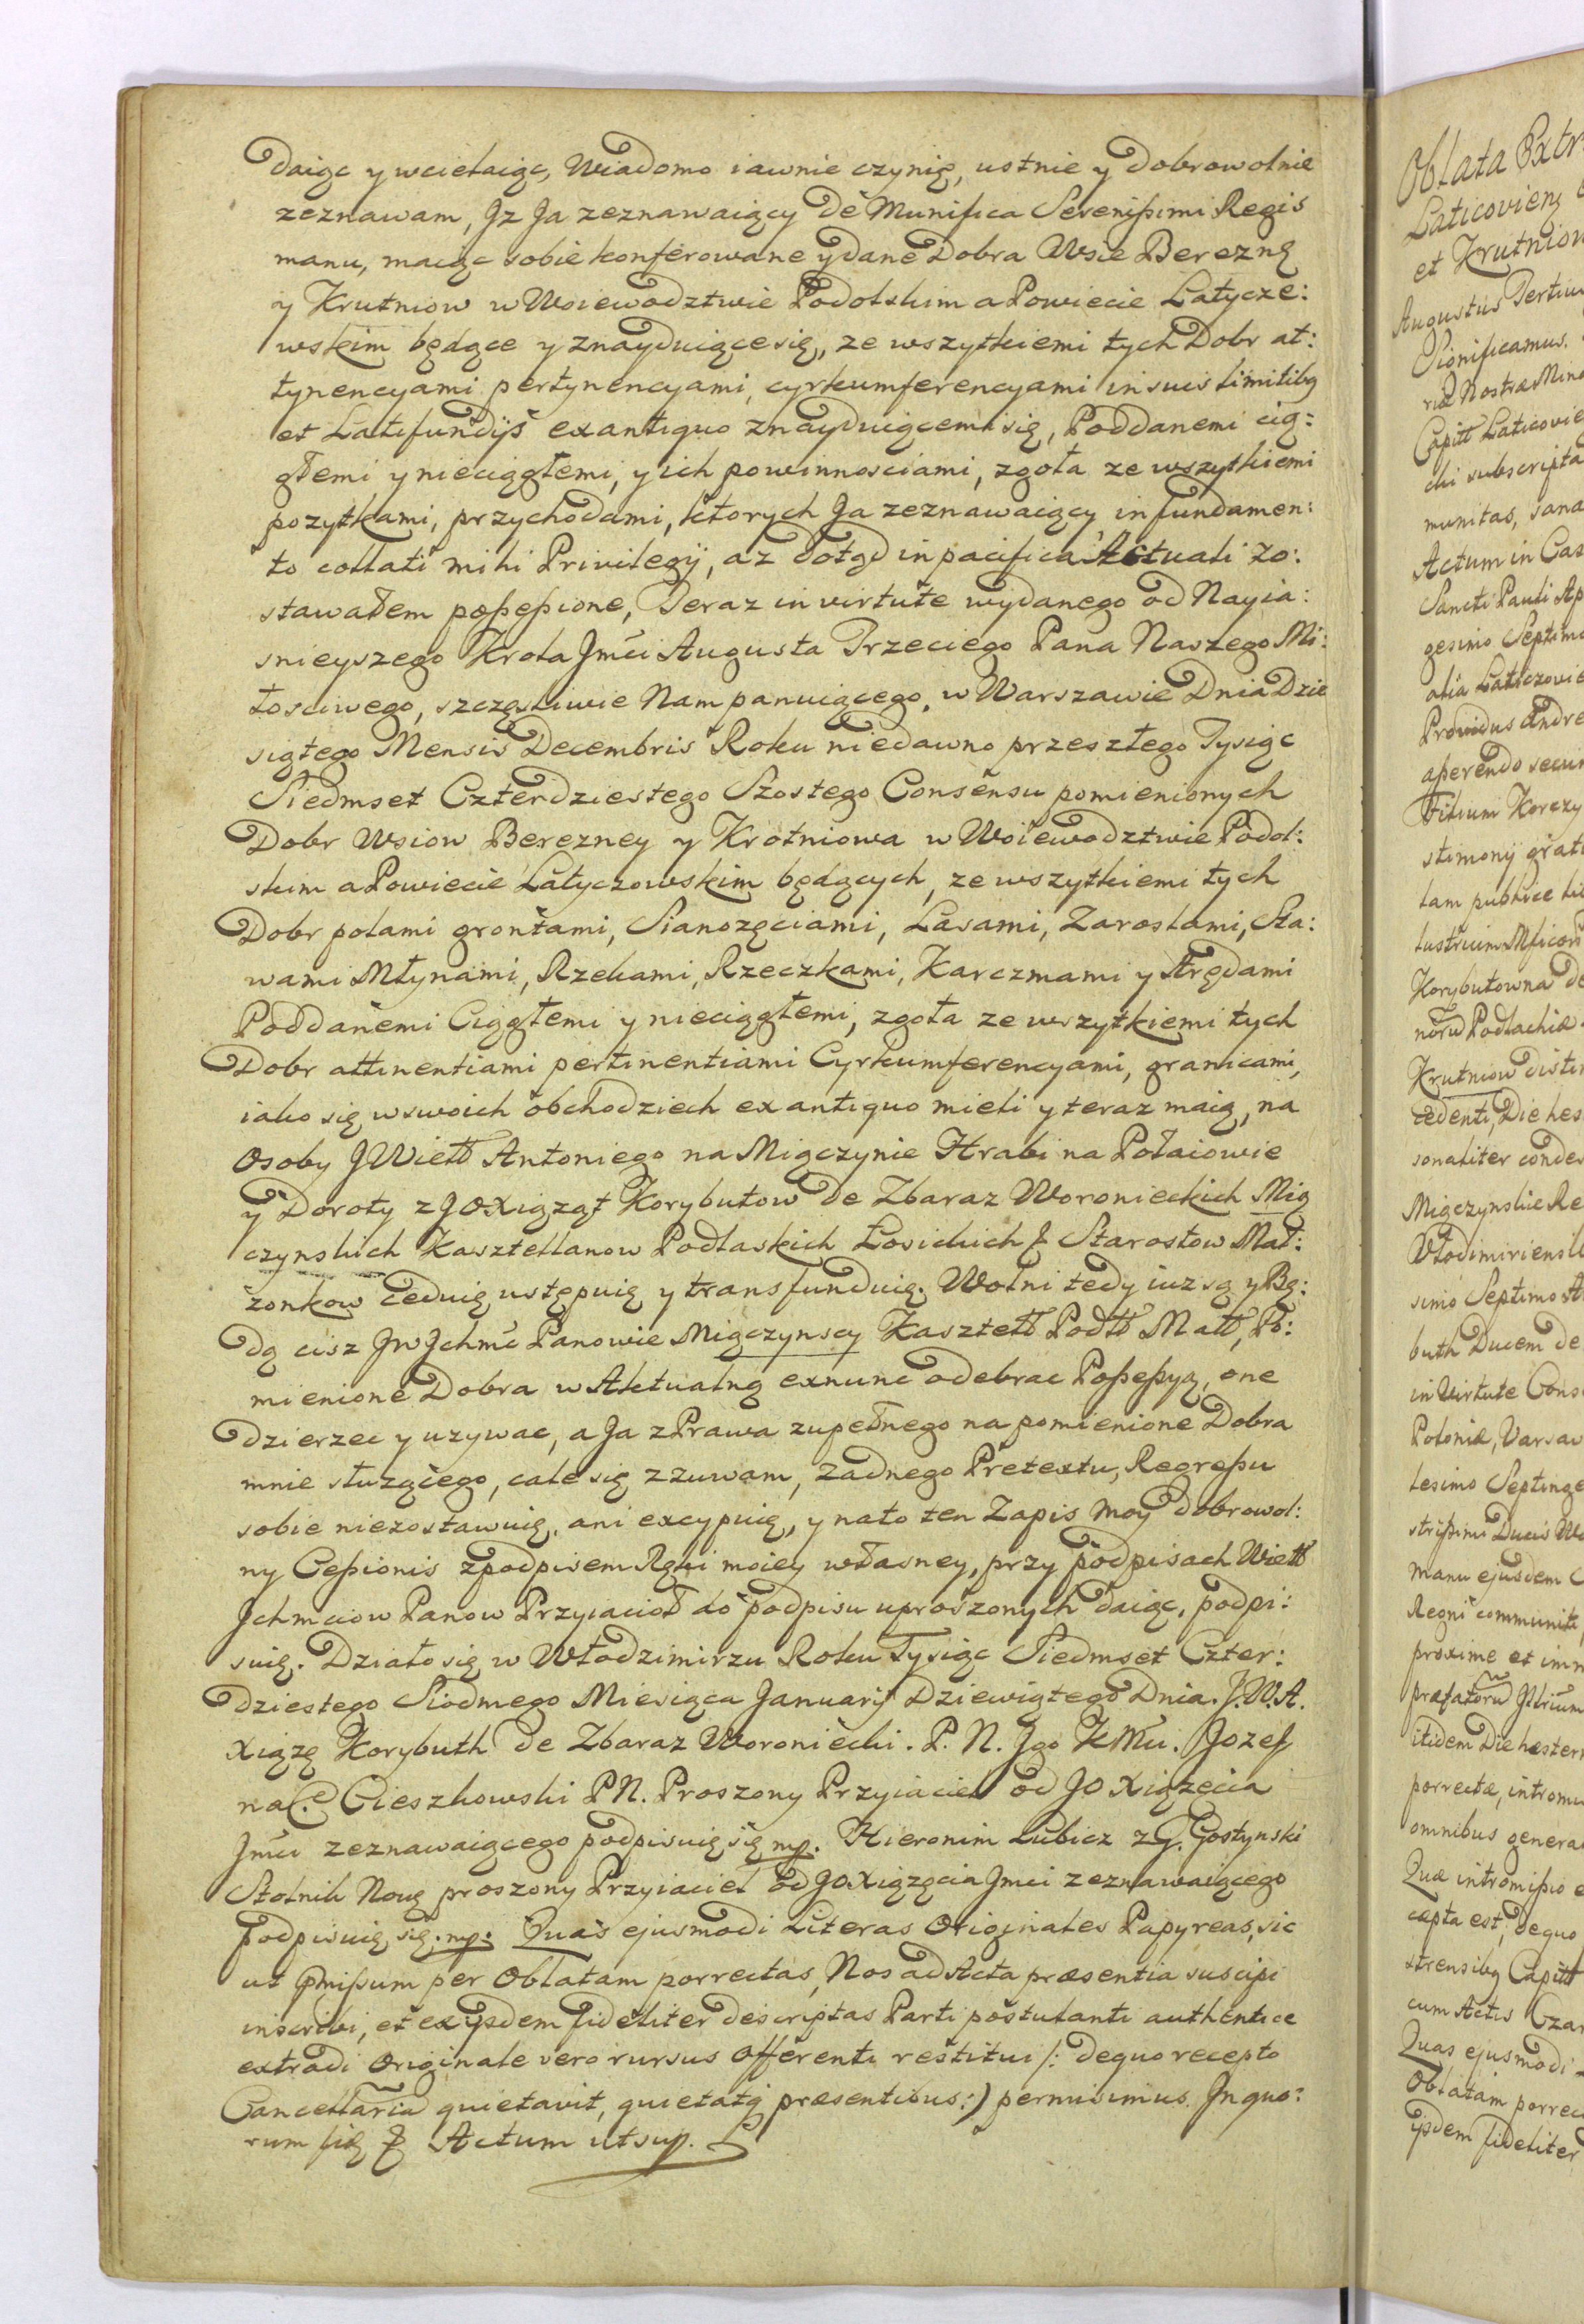 daiąc y wcielaiąc, Wiadomo iawnie czynię, ustnie y dobrowolnie
zeznawam, Jz Ja zeznawaiący de Munifica Serenißimi Regis
manu, maiąc sobie konferowane y dane Dobra Wsie Berezną
y Krutniow w Woiewodztwie Podolskim a Powiecie Latycze:
wskim będące y znayduiące się, ze wszytkiemi tych Dobr at:
tynencyami pertynencyami, cyrkumferencyami in suis limitibq
et Latifundijs ex antiquo znayduiącemi się, Poddanemi cią:
głemi y nieciągłemi, y ich powinnosciami, zgoła ze wszytkiemi
pozytkami, przychodami, ktorych Ja zeznawaiący in fundamen:
to collati mihi Privilegij, az dotąd in pacifica Actuali zo:
stawałem poßeßione, Teraz in virtute wydanego od Nayia:
snieyszego Krola Jmći Augusta Trzeciego Pana Naszego Mi:
łosciwego, szczęsliwie Nam panuiącego, w Warszawie Dnia Dzie
siątego Mensis Decembris Roku niedawno przeszłego Tysiąc
Siedmset Czterdziestego Szostego Consensu pomienionych
Dobr Wsiow Berezney y Krotniowa w Woiewodztwie Podol:
skim a Powiecie Latyczowskim będących, ze wszytkiemi tych
Dobr polami grontami, Sianozęciami, Lasami, Zaroslami, Sta:
wami Młynami, Rzekami, Rzeczkami, Karczmami y Arędami
Poddanemi Ciągłemi y nieciągłemi, zgoła ze wszytkiemi tych
Dobr attinentiami pertinentiami Cyrkumferencyami, granicami,
iako się w swoich obchodziech ex antiquo mieli y teraz maią, na
Osoby JWiell Antoniego na Miączynie Hrabi na Połaiowie
y Doroty z JOXiąząt Korybutow de Zbaraz Woronieckich Mią
czynskich Kasztellanow Podlaskich Łosickich & Starostow Mał:
zonkow ceduię ustępuię y transfunduię. Wolni tedy iuz są y Bę:
dą cisz Jw Jchmć Panowie Miączynscy Kasztell Podll Mall, Po:
mienione Dobra w Aktualną exnunc odebrac Poßeßyą, one
dzierzec y uzywac, a Ja z Prawa zupełnego na pomienione Dobra
mnie słuzącego, cale się zzuwam, zadnego Pretextu, Regreßu
sobie niezostawuię, ani excypuię, y nato ten Zapis moy dobrowol:
ny Ceßionis z podpisem Ręki moiey własney, przy podpisach Wiell
Jchmciow Panow Przyiacioł do podpisu uproszonych daiąc, podpi:
suię. Działo się w Włodzimirzu Roku Tysiąc Siedmset Czter:
dziestego Siodmego Miesiąca Januarij Dziewiątego Dnia. J. W. A.
Xiązę Korybuth de Zbaraz Woroniecki. P. N. Jgo KMci. Jozef
na C. Cieszkowski PN. Proszony Przyiaciel od JO Xiązęcia
Jmći zeznawaiącego podpisuię się mp. Hieronim Lubicz z G. Gostynski
Stolnik Nowę proszony Przyiaciel od JOXiązęcia Jmci zeznawaiącego
podpisuię się. mp. Quas ejusmodi Literas Originales Papyreas, sic
ut pmißum per Oblatam porrectas, Nos ad Acta præsentia suscipi
inscribi, et ex ijsdem fideliter descriptas Parti postulanti authentice
extradi Originale vero rursus Offerenti restitui /: de quo recepto
Cancellaria quietavit, quietatq præsentibus :) permisimus. In quo:
rum fid & Actum ut sup.
Oblata Extr
Laticovien
et Krutniow
Augustus Tertiu
Significamus.
riæ Nostræ Mino
Capitt Laticovie
chi subscripta
munitas, sana
Actum in Cas
Sancti Pauli Ap
gesimo Septimo
alia Laticzovie
Providus Andre
aperendo secun
Filium Korczy
stimonij grati
tam publice
lustrium Mficor
Korybutowna de
norũ Podlachiæ
Krutniow disti
cedenti, Die hes
sonaliter conde
Miączynskie Re
Vlodimiriensi
simo Septimo A
buth Ducem de
in Virtute Cons
Poloniæ, Varsav
lesimo Septinge
strißimi Ducis Wo
manu ejusdem
Regni communit
proxime et imm
præfatorũ Jllrium
itidem Die hester
porrectæ, intromi
omnibus genera
Quæ intromißio e
capta est, de quo
strensibq Capitt
cum Actis Czar
Quas ejusmodi
Oblatam porrec
ijsdem fideliter